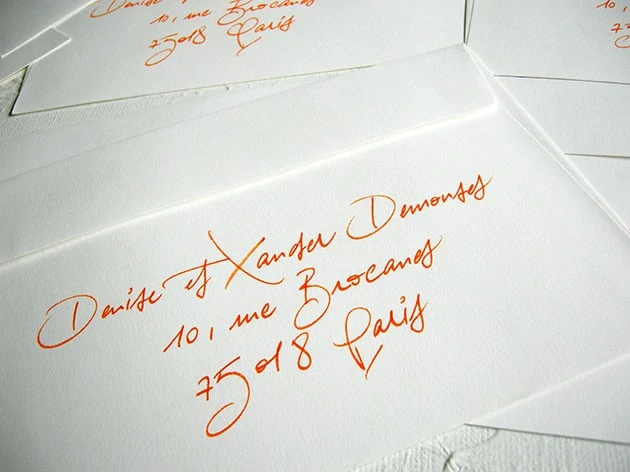 Denise
10, rue Brocanes
75018 Paris
Denise et Xander Demonses
10, rue Brocanes
75018 Paris